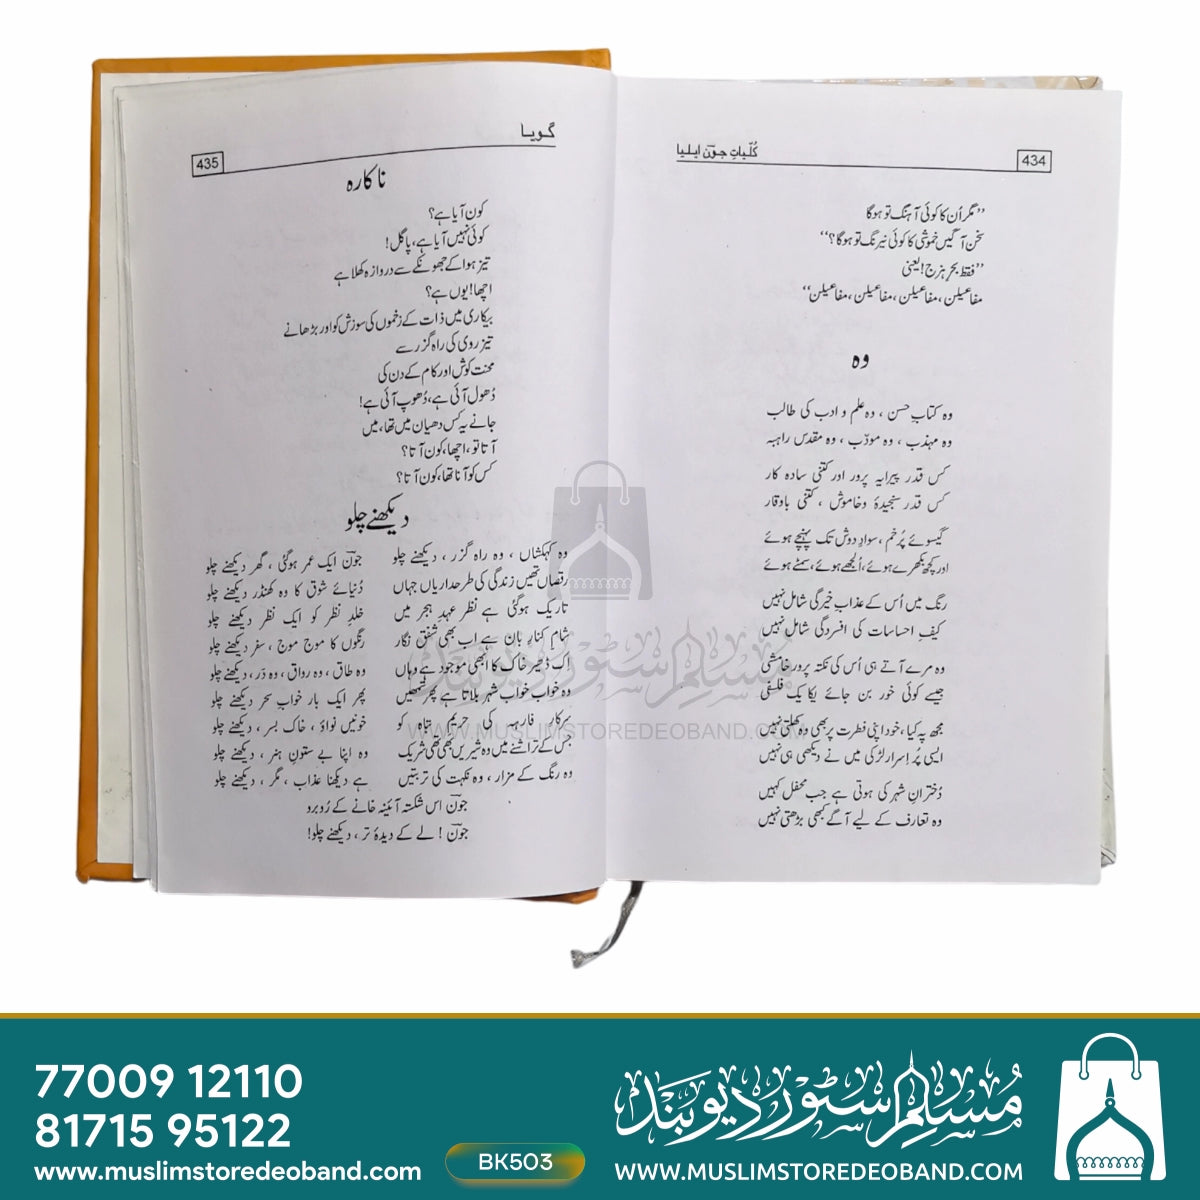 434
کُلّیاتِ جونؔ ایلیا
’’مگر اُن کا کوئی آہنگ تو ہوگا
سخن آگیں خموشی کا کوئی نیرنگ تو ہوگا؟‘‘
’’فقط بحرِ ہزج! یعنی
مفاعیلن، مفاعیلن، مفاعیلن، مفاعیلن‘‘
وہ
وہ کتابِ حسن ، وہ علم و ادب کی طالب
وہ مہذب ، وہ مودّب ، وہ مقدس راہبہ
کس قدر پیرایہ پرور اور کتنی سادہ کار
کس قدر سنجیدۂ و خاموش ، کتنی باوقار
گیسوئے پُرخم ، سوادِ دوش تک پہنچے ہوئے
اور کچھ بکھرے ہوئے، اُلجھے ہوئے، سمٹے ہوئے
رنگ میں اُس کے عذابِ خیرگی شامل نہیں
کیفِ احساسات کی افسردگی شامل نہیں
وہ مرے آتے ہی اُس کی نکتہ پرور خامشی
جیسے کوئی حور بن جائے یکایک فلسفی
مجھ پہ کیا ، خود اپنی فطرت پر بھی وہ کھلتی نہیں
ایسی پُر اسرار لڑکی میں نے دیکھی ہی نہیں
دُخترانِ شہر کی ہوتی ہے جب محفل کہیں
وہ تعارف کے لیے آگے کبھی بڑھتی نہیں
گویا
435
ناکارہ
کون آیا ہے؟
کوئی نہیں آیا ہے، پاگل!
تیز ہوا کے جھونکے سے دروازہ کھلا ہے
اچھا! یوں ہے؟
بیکاری میں ذات کے زخموں کی سوزش کو اور بڑھانے
تیز روی کی راہ گزر سے
محنت کوش اور کام کے دن کی
دُھول آئی ہے، دُھوپ آئی ہے!
جانے یہ کس دھیان میں تھا، میں
آتا تو، اچھا، کون آتا؟
کس کو آنا تھا، کون آتا؟
دیکھنے چلو
وہ کہکشاں ، وہ راہ گزر ، دیکھنے چلو
جونؔ ایک عمر ہوگئی ، گھر دیکھنے چلو
رقصاں تھیں زندگی کی طرحداریاں جہاں
دُنیائے شوق کا وہ کھنڈر دیکھنے چلو
تاریک ہوگئی ہے نظر عہدِ ہجر میں
خلدِ نظر کو ایک نظر دیکھنے چلو
شامِ کنارِ بان ہے اب بھی شفق نگار
رنگوں کا موج موج ، سفر دیکھنے چلو
اِک ڈھیر خاک کا ابھی موجود ہے وہاں
وہ طاق ، وہ رواق ، وہ دَر ، دیکھنے چلو
وہ خواب خواب شہر بلاتا ہے پھر تمھیں
پھر ایک بار خوابِ سحر دیکھنے چلو
سرکارِ فارہہ کی حریمِ تباہ کو
خونیں نواؤ ، خاک بسر ، دیکھنے چلو
جس کے تراشنے میں وہ شیریں بھی تھی شریک
وہ اپنا بے ستونِ ہنر ، دیکھنے چلو
وہ رنگ کے مزار ، وہ نکہت کی تربتیں
ہے دیکھنا عذاب ، مگر ، دیکھنے چلو
جونؔ اس شکستہ آئینہ خانے کے رُوبرو
جونؔ ! لے کے دیدۂ تر ، دیکھنے چلو!
مُسلم سٹور دیوبند
WWW.MUSLIMSTOREDEOBAND.COM
77009 12110
81715 95122
www.muslimstoredeoband.com
BK503
مُسلم سٹور دیوبند
WWW.MUSLIMSTOREDEOBAND.COM